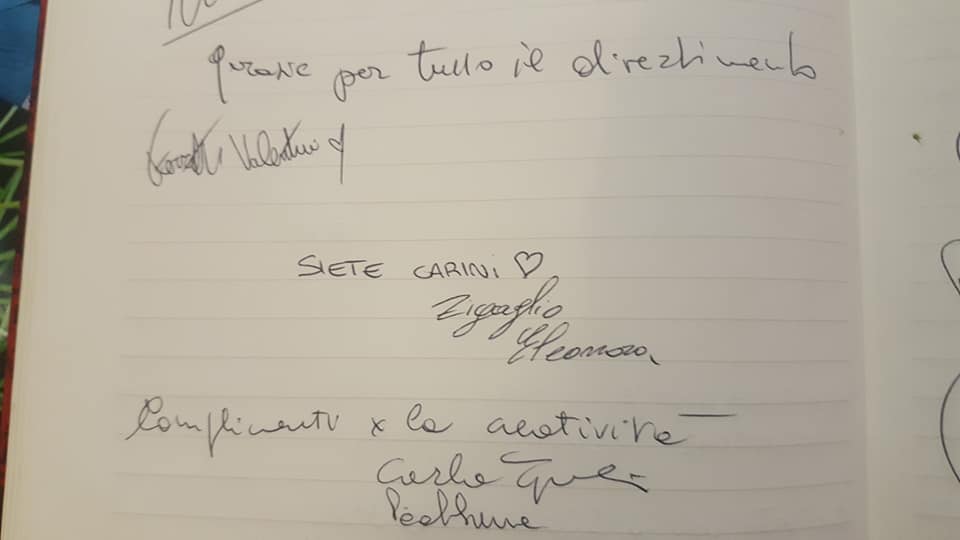 Grazie per tutto il divertimento
Valentino
SIETE CARINI ♡
Zigaglio
Eleonora
Complimenti x la creatività
Carlo